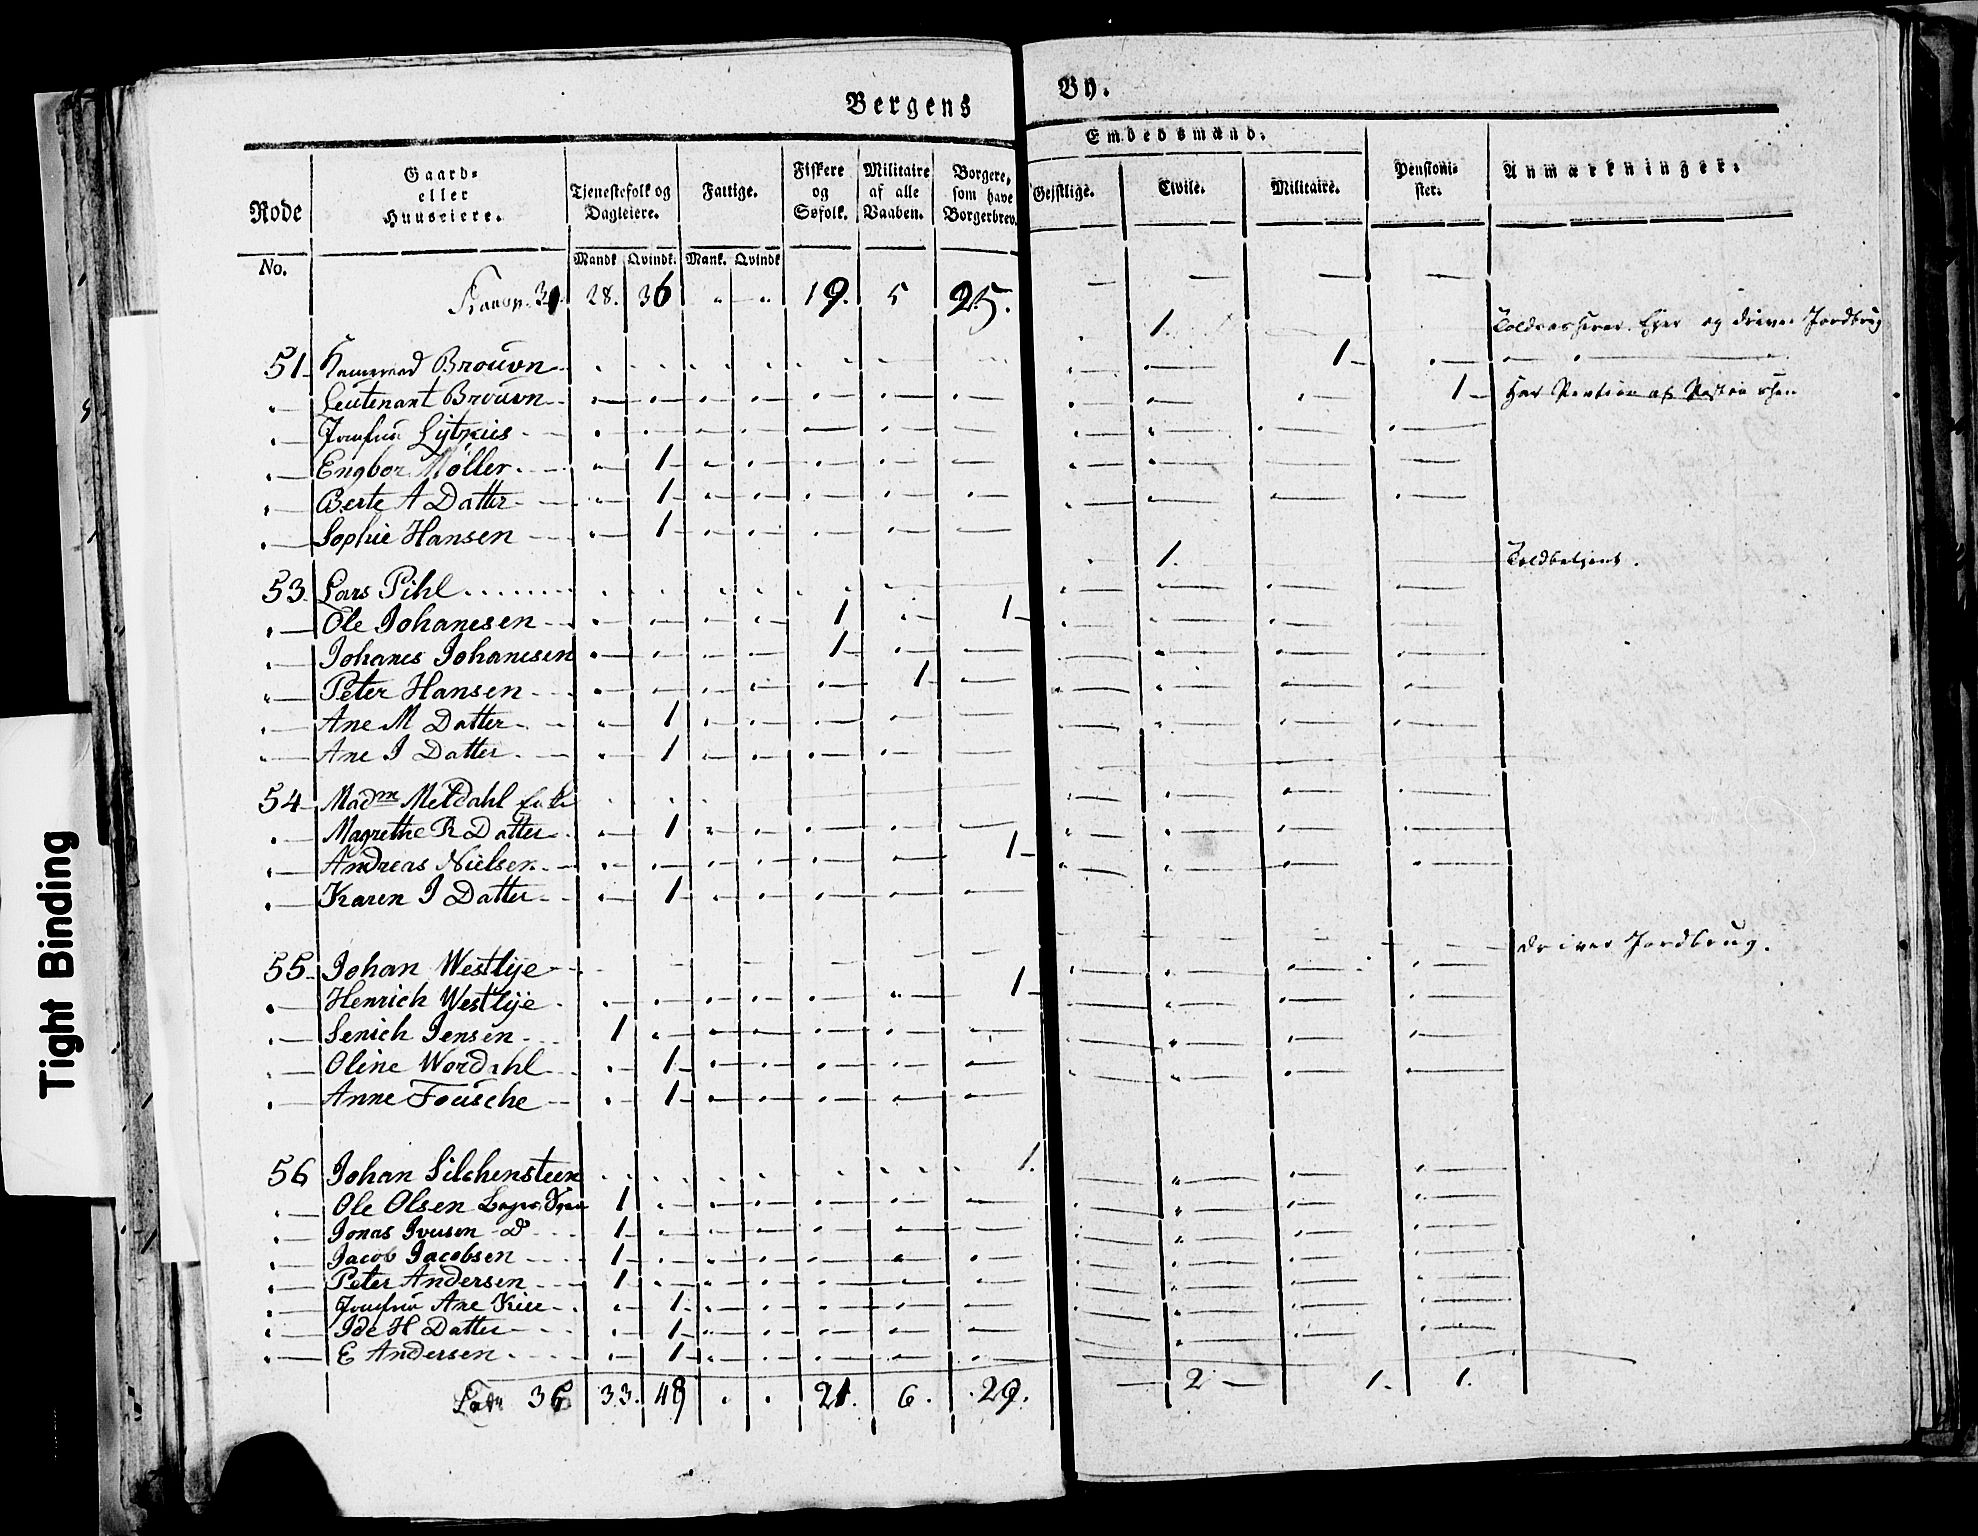 Bergens By.
Embedsmænd.
Rode Gaard- eller Huuseiere. Tjenestefolk og Dagleiere. Fattige. Fiskere og Søfolk. Militaire af alle Vaaben. Borgere, som have Borgerbrev. Gejstlige. Civile. Militaire. Pensionister. Anmærkninger.
No. Mandk. Qvindk. Mank. Qvindk.
Transp. 31 28. 36 " " 19. 5 25. — — — —
51 Kamerraad Brouvn 1. Toldcasserer. Ejer og driver Jordbrug
" Leutenant Brouvn 1 " — " —
" Jomfrue Lytzus 1 Har Pension af
" Engbor Møller 1
" Berte A Datter 1
" Sophie Hansen 1
53 Lars Pihl 1. Toldbetjent.
" Ole Johanesen 1 1
" Johanes Johanesen 1
" Peter Hansen 1
" Ane M Datter 1
" Ane J Datter 1
54 Madm Meldahl Enke
" Magrethe R Datter 1
" Andreas Nielsen 1
" Karen J Datter 1
55 Johan Westlye driver Jordbrug.
" Henrich Westlye 1
" Senich Jensen 1
" Oline Wordahl 1
" Anne Fousche 1
56 Johan Silchensteen 1.
" Ole Olsen 1
" Jonas Iversen D 1
" Jacob Jacobsen 1
" Peter Andersen 1
" Jomfrue Ane Kiee 1
" Ide H Datter 1
" E Andersen 1
Latr 36 33. 48 " " 21. 6. 29. — 2 — 1. 1.
Tight Binding